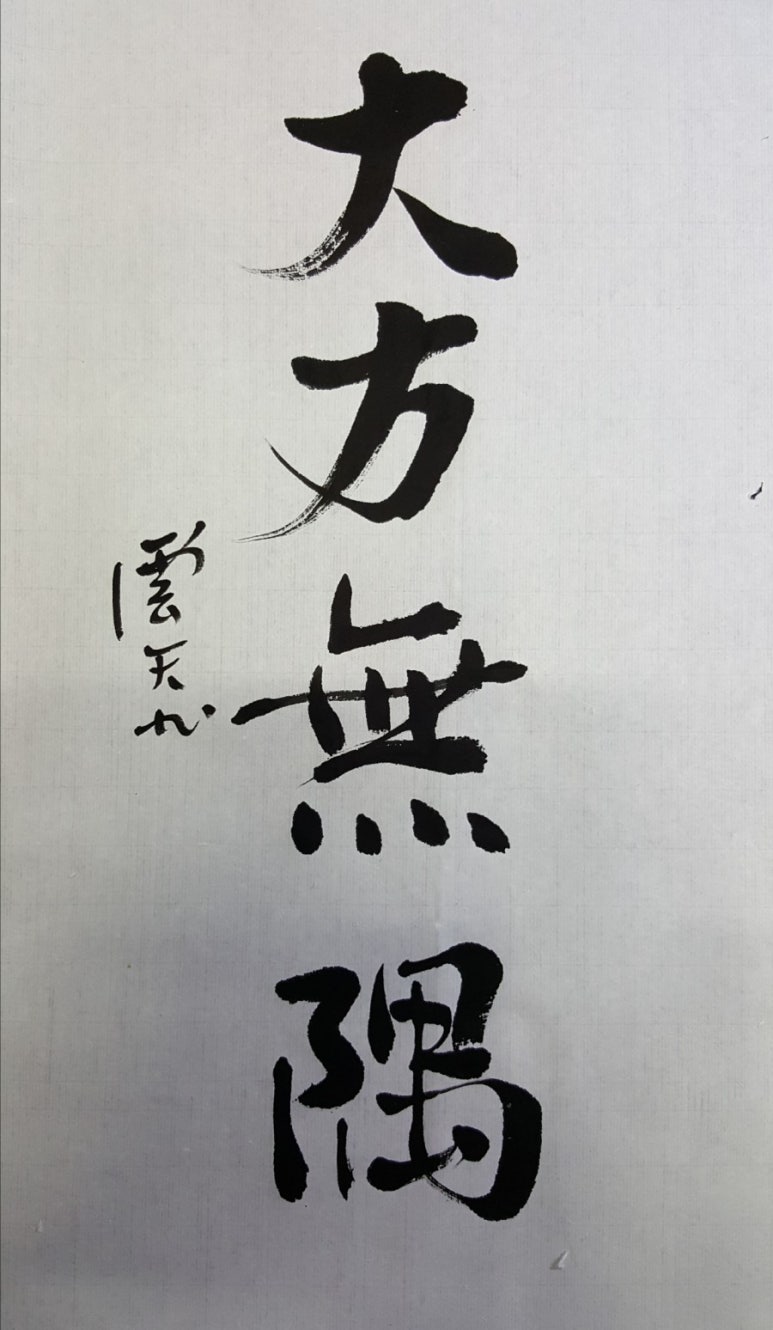 大方無隅
雲天